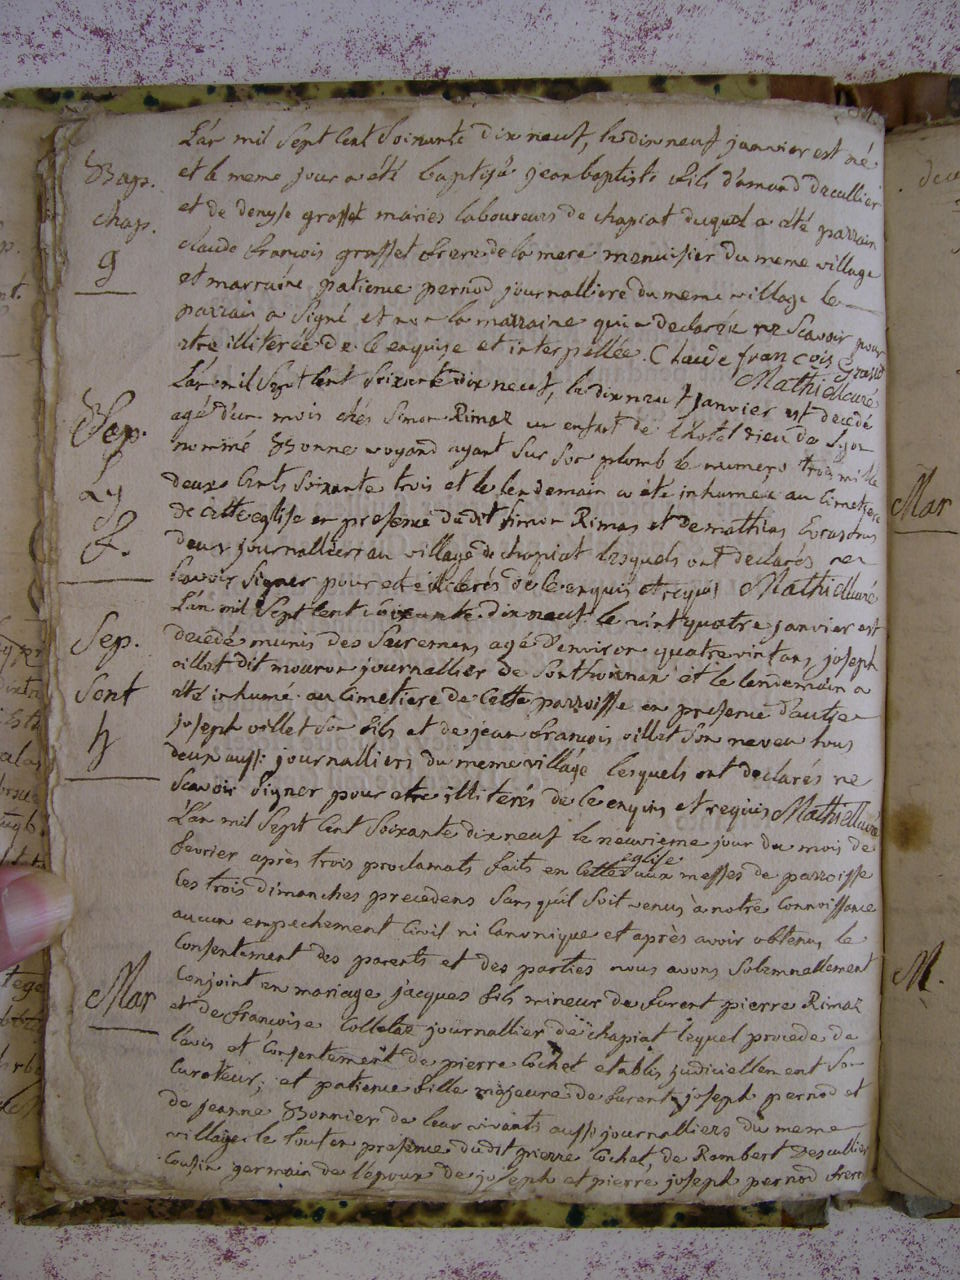 L'an mil Sept Cent Soixante dix neuf, le dix neuf janvier est né
et le meme jour a été baptisé jean baptiste fils d'amand decullier
et de denyse grosset mariés laboureurs de chapiat duquel a été parrain
claude francois grosset frere de la mere menuisier du meme village
et marraine patience pernod journalliere du meme village le
parrain a Signé et non la marraine qui a declarée ne Scavoir pour
etre illiterée de ce enquise et interpellée. Claude françois Grosset
Mathieu curé
Bap.
chap.
g
L'an mil Sept Cent Soixante dix neuf, le dix neuf janvier est decedé
agé d'un mois chés Simon Rimaz un enfant de l'hotel dieu de Lyon
nommé Bonne voyand ayant Sur Son plomb le numero trois mille
deux Cents Soixante trois et le lendemain a été inhumée au Cimetiere
de Cette eglise en presence dudit Simon Rimaz et de mathias
deux journalliers au village de chapiat lesquels ont declarés ne
Scavoir Signer pour etre illiterés de ce enquis et requis Mathieu curé
Sep.
L'an mil Sept Cent Soixante dix neuf le vint quatre janvier est
decedé munis des Sacremens agé d'environ quatre vint ans joseph
villet dit mouron journallier de Sonthonnax et le lendemain a
eté inhumé au Cimetiere de Cette parroisse en presence d'autre
joseph villet Son fils et de jean francois villet Son neveu tous
deux aussi journalliers du meme village lesquels ont declarés ne
Scavoir Signer pour etre illiterés de ce enquis et requis Mathieu curé
Sep.
Sont
h
L'an mil Sept Cent Soixante dix neuf le neuvieme jour du mois de
fevrier après trois proclamats faits en Cette eglise aux messes de parroisse
les trois dimanches precedens Sans qu'il Soit venus à notre Connoissance
aucun empechement Civil ni Canonique et après avoir obtenus le
Consentement des parents et des parties nous avons Solemnellement
Conjoint en mariage jacques fils mineur de furent pierre Rimaz
et de francoise Colletaz journallier de chapiat lequel procede de
l'avis et Consentement de pierre Cochet etablis judiciellement Son
Curateur; et patience fille majeure de furent joseph pernod et
de jeanne Bonnier de leur vivants aussi journalliers du meme
village le tout en presence dudit pierre Cochet, de Rambert Descullier
Cousin germain de l'epoux de joseph et pierre joseph pernod freres
Mar
Mar
M.